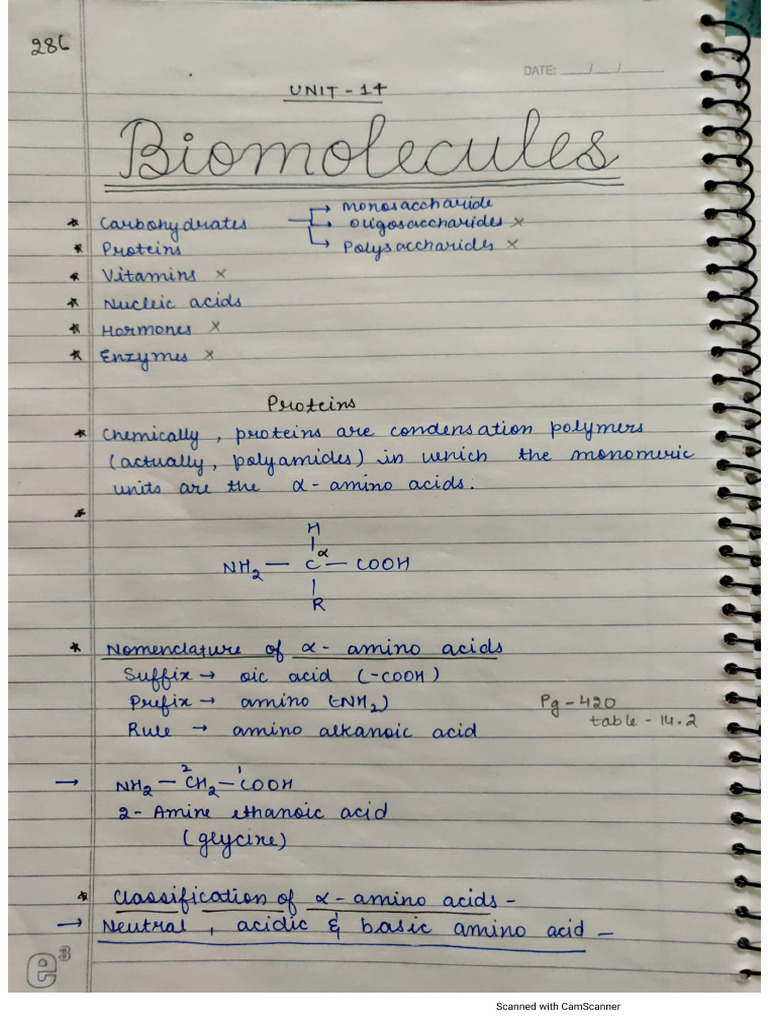 286
DATE: __/__/____
UNIT - 14
Biomolecules
* Carbohydrates → Monosaccharide
→ Oligosaccharides ×
→ Polysaccharides ×
* Proteins
* Vitamins ×
* Nucleic acids
* Hormones ×
* Enzymes ×
Proteins
* Chemically, proteins are condensation polymers
(actually, polyamides) in which the monomeric
units are the α- amino acids.
*
H
|
NH₂ — C α — COOH
|
R
* Nomenclature of α- amino acids
Suffix → oic acid (-COOH)
Prefix → amino (-NH₂) Pg - 420
table - 14.2
Rule → amino alkanoic acid
2 1
→ NH₂ — CH₂ — COOH
2- Amine ethanoic acid
(glycine)
* Classification of α- amino acids -
→ Neutral, acidic & basic amino acid -
e3
Scanned with CamScanner